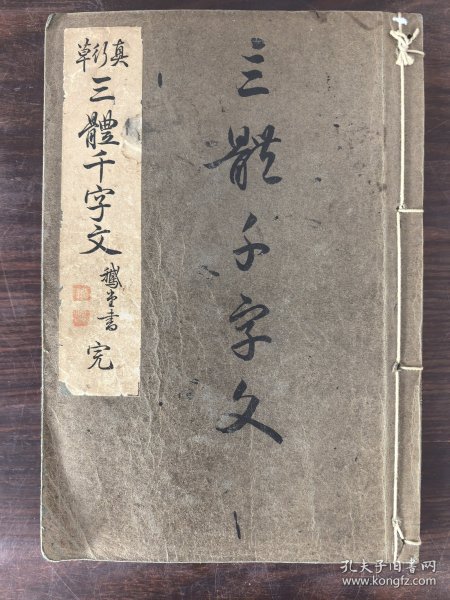 真行草
三體千字文
鵞堂書
完
三體千字文
孔夫子旧书网
www.kongfz.com